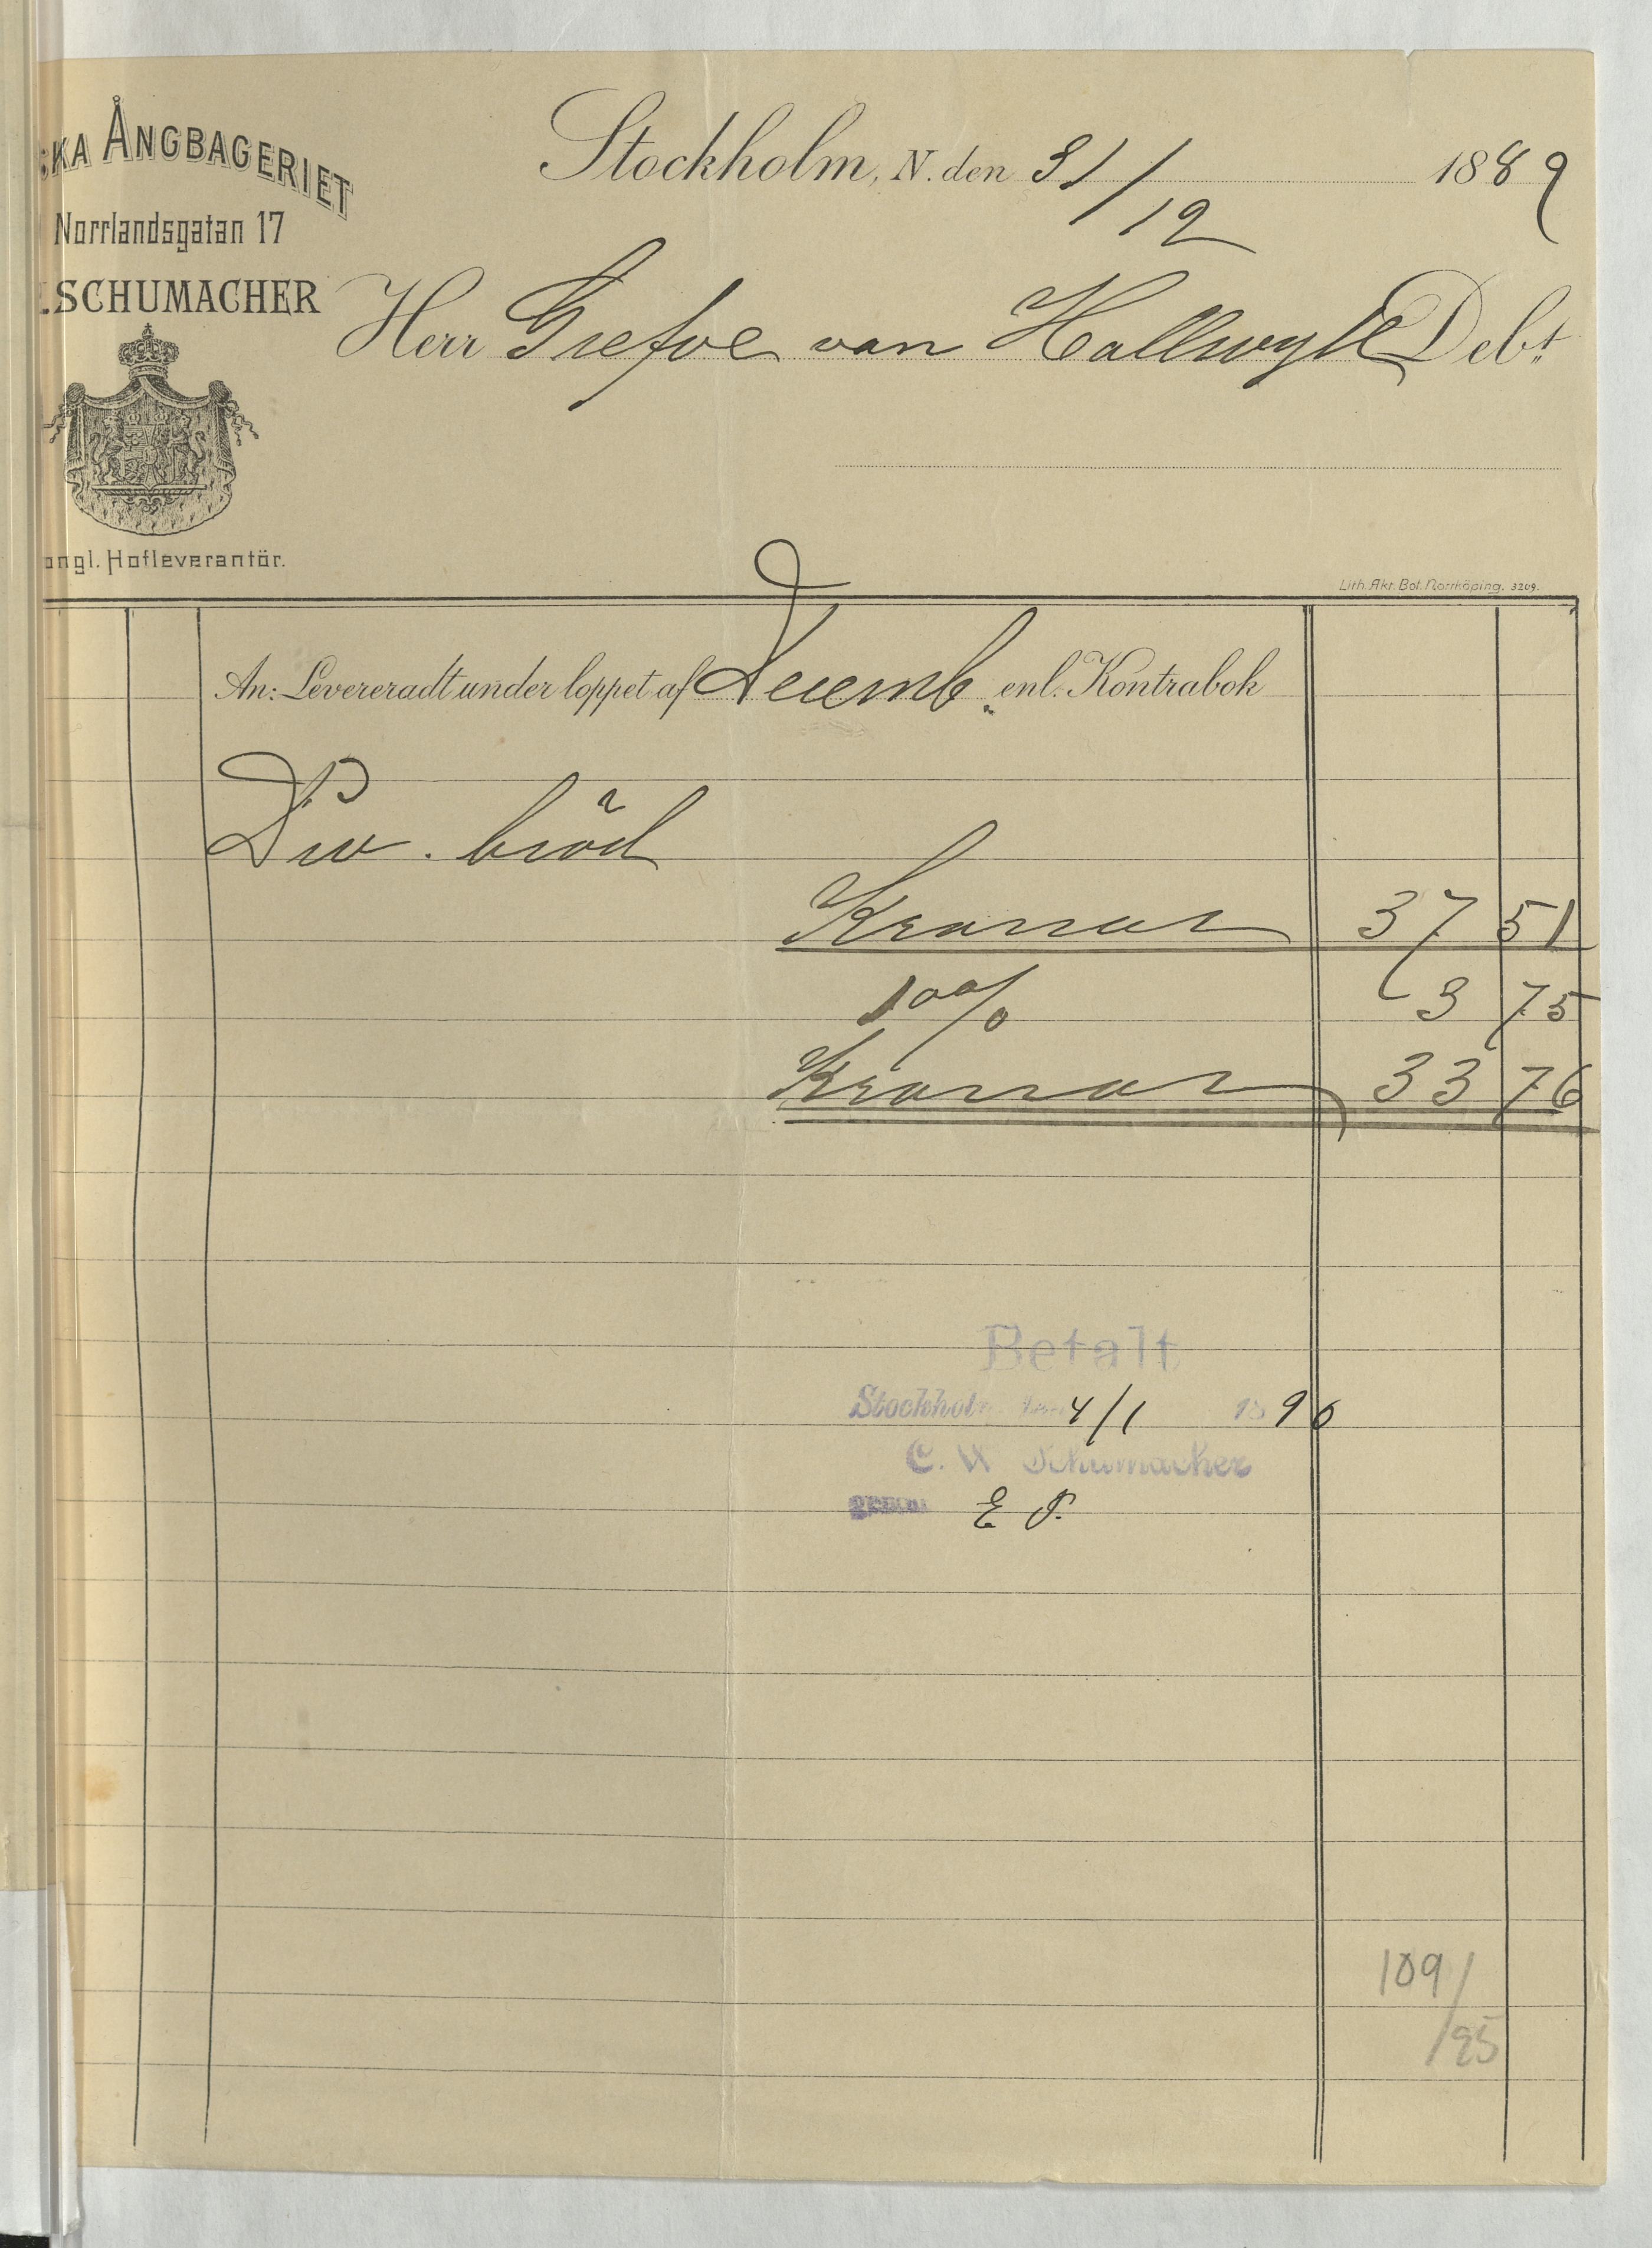 SKA ÅNGBAGERIET
Norrlandsgatan 17
SCHUMACHER
ongl. Hofleverantör.
Stockholm, N. den 31/12 1889
Herr Grefve van Hallwyll Debt
Lith. Akt. Bol. Norrköping. 3209.
An: Levereradt under loppet af Decemb. enl. Kontrabok
Div. bröd
Kronor 37 51
10 0/0 3 75
Kronor 33 76
Betalt
Stockholm den 4/1 1890
C. W Schumacher
genom E
109/